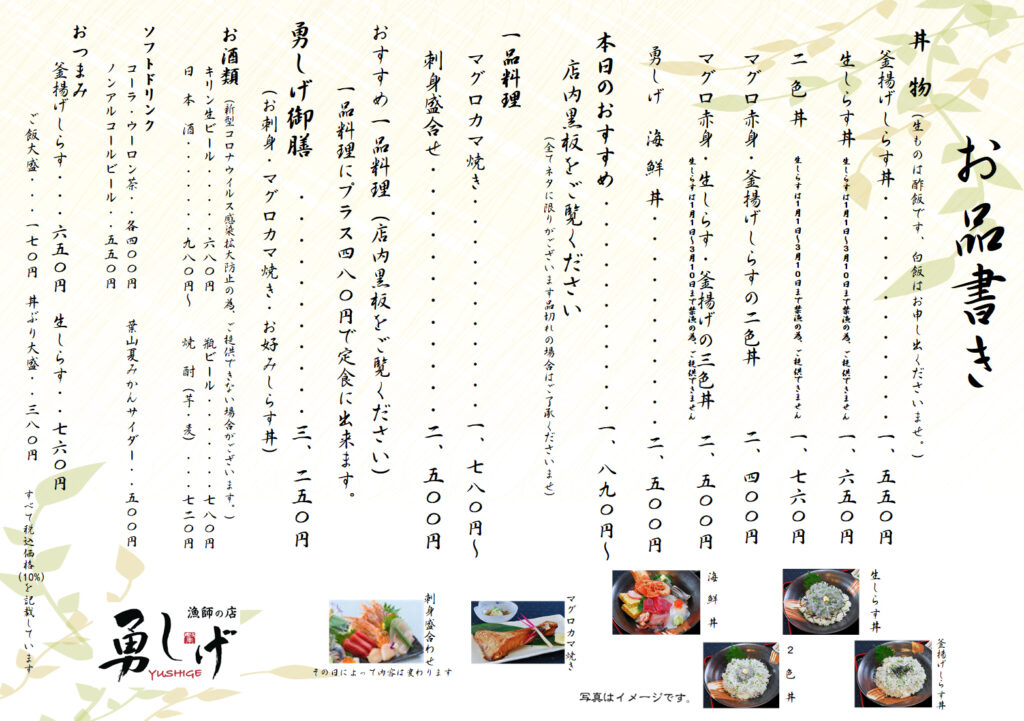 お品書き
丼物（生ものは酢飯です、白飯はお申し出くださいませ。）
釜揚げしらす丼・・・・・・・・・・一、五五〇円
生しらす丼 生しらすは1月1日～3月10日まで禁漁の為、ご提供できません 一、六五〇円
二色丼 生しらすは1月1日～3月10日まで禁漁の為、ご提供できません 一、七六〇円
マグロ赤身・釜揚げしらすの二色丼 二、四〇〇円
マグロ赤身・生しらす・釜揚げの三色丼 二、五〇〇円
生しらすは1月1日～3月10日まで禁漁の為、ご提供できません
勇しげ 海鮮丼・・・・・・・・・・二、五〇〇円
本日のおすすめ・・・・・・・・・・一、八九〇円～
店内黒板をご覧ください
（全てネタに限りがございます品切れの場合はご了承くださいませ）
一品料理
マグロカマ焼き・・・・・・・・・・一、七八〇円～
刺身盛合せ・・・・・・・・・・二、五〇〇円
おすすめ一品料理（店内黒板をご覧ください）
一品料理にプラス四八〇円で定食に出来ます。
勇しげ御膳・・・・・・・・・・三、二五〇円
（お刺身・マグロカマ焼き・お好みしらす丼）
お酒類（新型コロナウイルス感染拡大防止の為、ご提供できない場合がございます。）
キリン生ビール・・・・六八〇円 瓶ビール・・・・・・・七八〇円
日本酒・・・・・・・九八〇円～ 焼酎（芋・麦）・・・・七二〇円
ソフトドリンク
コーラ・ウーロン茶・・各四〇〇円 葉山夏みかんサイダー・・五〇〇円
ノンアルコールビール・・五五〇円
おつまみ
釜揚げしらす・・・六五〇円 生しらす・・七六〇円
ご飯大盛・・・一七〇円 丼ぶり大盛・・三八〇円
すべて税込価格(10%)を記載しています
生しらす丼
海鮮丼
マグロカマ焼き
刺身盛合わせ
その日によって内容は変わります
釜揚げしらす丼
2色丼
写真はイメージです。
漁師の店
勇しげ
YUSHIGE